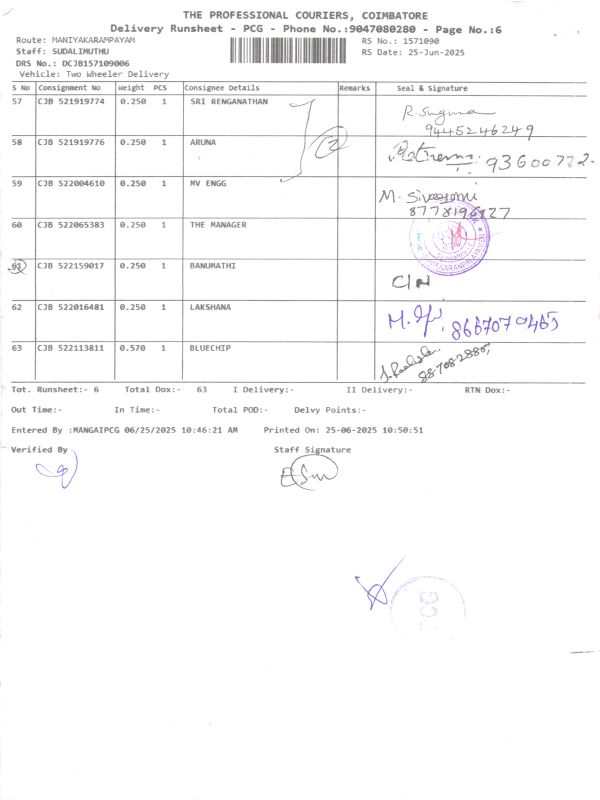 THE PROFESSIONAL COURIERS, COIMBATORE
Delivery Runsheet - PCG - Phone No.:9047080280 - Page No.:6
Route: MANIYAKARAMPAYAM
RS No.: 1571090
Staff: SUDALIMUTHU
RS Date: 25-Jun-2025
DRS No.: DCJB157109006
Vehicle: Two Wheeler Delivery
S No Consignment No Weight PCS Consignee Details Remarks Seal & Signature
57 CJB 521919774 0.250 1 SRI RENGANATHAN R. Suguna
9445246249
2
58 CJB 521919776 0.250 1 ARUNA 93600772-
59 CJB 522004610 0.250 1 MV ENGG M. Sivasgami
8778196727
60 CJB 522065383 0.250 1 THE MANAGER
61 CJB 522159017 0.250 1 BANUMATHI C/N
62 CJB 522016481 0.250 1 LAKSHANA M. 8667070465
63 CJB 522113811 0.570 1 BLUECHIP
Tot. Runsheet:- 6 Total Dox:- 63 I Delivery:- II Delivery:- RTN Dox:-
Out Time:- In Time:- Total POD:- Delvy Points:-
Entered By :MANGAIPCG 06/25/2025 10:46:21 AM Printed On: 25-06-2025 10:50:51
Verified By Staff Signature
PCG